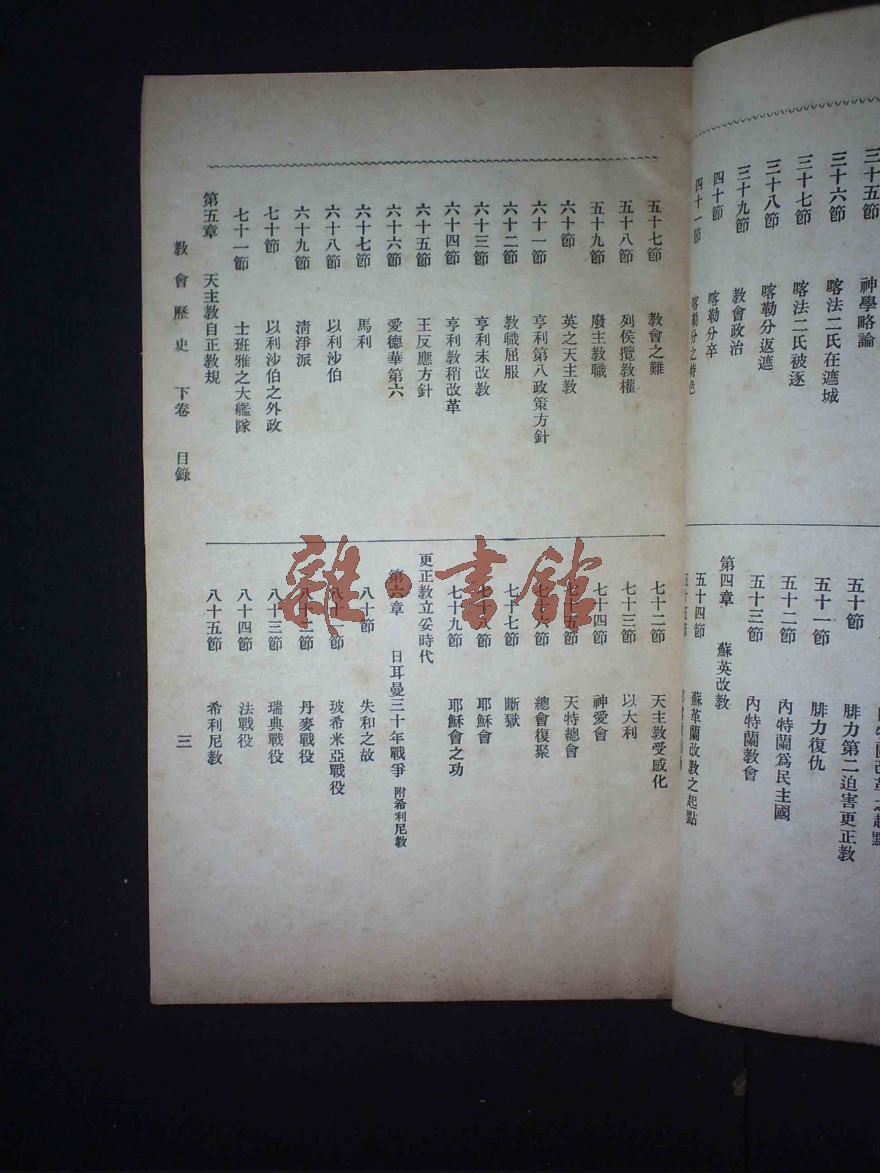 三十五節　神學略論
三十六節　喀法二氏在遮城
三十七節　喀法二氏被逐
三十八節　喀勒分返遮
三十九節　教會政治
四十節　喀勒分卒
四十一節　喀勒分之特色
五十節　腓力第二迫害更正教
五十一節　腓力復仇
五十二節　內特蘭爲民主國
五十三節　內特蘭教會
第四章　蘇英改教
五十四節　蘇革蘭改教之起點
五十五節
五十七節　教會之難
五十八節　列侯攬教權
五十九節　廢主教職
六十節　英之天主教
六十一節　亨利第八政策方針
六十二節　教職屈服
六十三節　亨利未改教
六十四節　亨利教稍改革
六十五節　王反應方針
六十六節　愛德華第六
六十七節　馬利
六十八節　以利沙伯
六十九節　清淨派
七十節　以利沙伯之外政
七十一節　士班雅之大艦隊
第五章　天主教自正教規
七十二節　天主教受感化
七十三節　以大利
七十四節　神愛會
七十五節　天特總會
七十六節　總會復聚
七十七節　斷獄
七十八節　耶穌會
七十九節　耶穌會之功
更正教立妥時代
第六章　日耳曼三十年戰爭　附希利尼教
八十節　失和之故
八十一節　玻希米亞戰役
八十二節　丹麥戰役
八十三節　瑞典戰役
八十四節　法戰役
八十五節　希利尼教
教會歷史　下卷　目錄　三
雜·書館